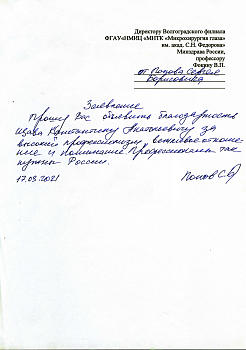 Директору Волгоградского филиала
ФГАУ«НМИЦ «МНТК «Микрохирургия глаза»
им. акад. С.Н. Федорова»
Минздрава России,
профессору
Фокину В.П.
от Попова Сергея
Борисовича
Заявление
Прошу Вас объявить благодарность
Константину Анатольевичу за
высокий профессионализм вежливое отноше-
ние и понимание. Профессионалы так
нужны России.
17.03.2021 Попов С.Б